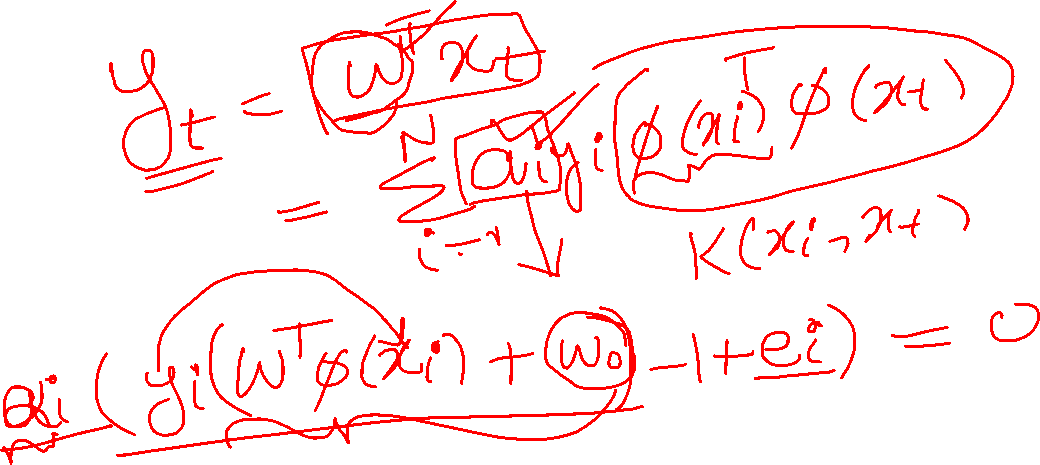 y_t = w^T x_t
= \sum_{i=1}^{N} α_i y_i φ(x_i)^T φ(x_t)
K(x_i, x_t)
α_i (y_i (w^T φ(x_i) + w_0) - 1 + e_i) = 0